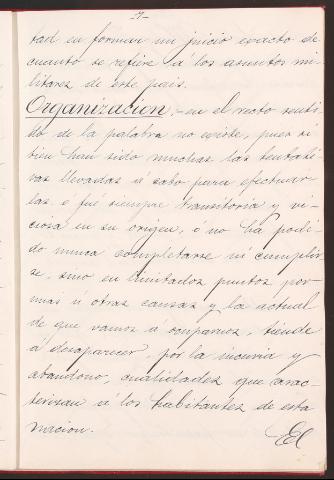 -27-
tad en formar un juicio exacto de
cuanto se refiere á los asuntos mi-
litares de este pais.
Organizacion,- en el recto senti-
do de la palabra no existe, pues si
bien han sido muchas las tentati-
vas llevadas á cabo para efectuar
las ó fué siempre transitoria y vi-
ciosa en su origen, ó no ha podi-
do nunca completarse ni cumplir
se, sino en limitados puntos por
unas ú otras causas y la actual
de que vamos a ocuparnos, tiende
á desaparecer, por la incuria y
abandono, cualidades que carac-
terizan á los habitantes de esta
nacion.
El